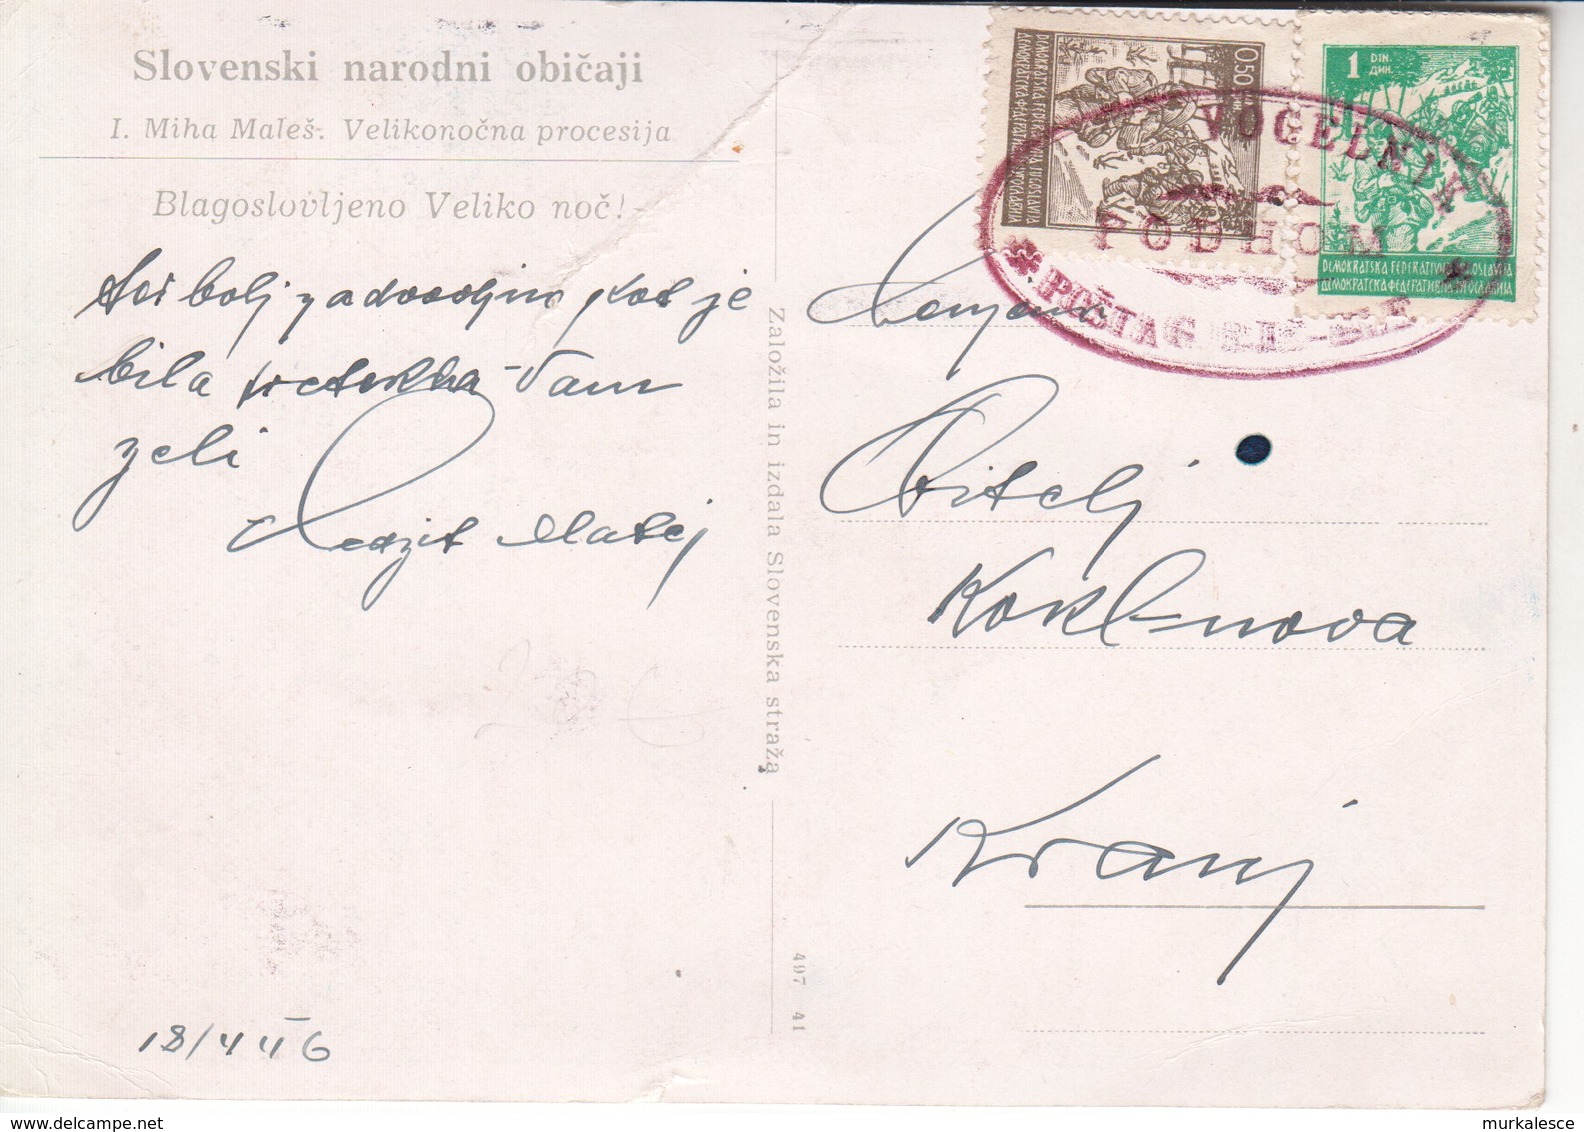 Slovenski narodni običaji
I. Miha Maleš: Velikonočna procesija
Blagoslovljeno Veliko noč!
bolj zadovoljno kot je
bila Vam
želi
Matej
18/4 46
Založila in izdala Slovenska straža
497 41
0.50
DEMOKRATSKA FEDERATIVNA JUGOSLAVIJA
ДЕМОКРАТСКА ФЕДЕРАТИВНА ЈУГОСЛАВИЈА
1 DIN.
ДИН.
DEMOKRATSKA FEDERATIVNA JUGOSLAVIJA
ДЕМОКРАТСКА ФЕДЕРАТИВНА ЈУГОСЛАВИЈА
VOGELNIK
PODHOM
Cenjena
Obitelj
Kranj
murkalesce